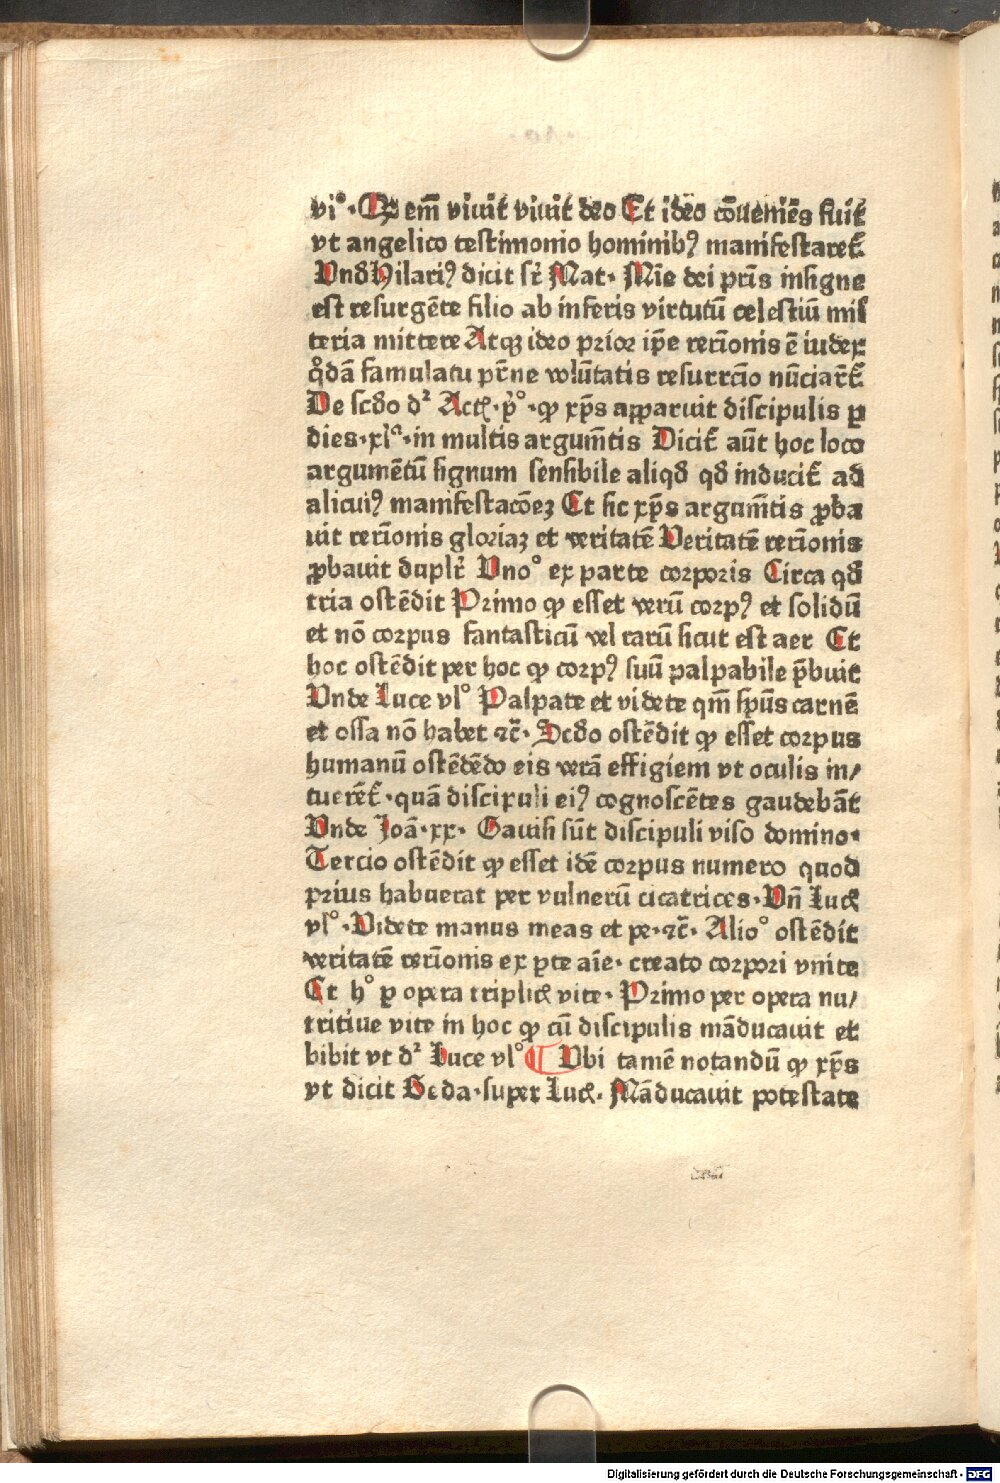 vi°·Qꝫ em̄ viuit viuit deo Et ideo cōueniēs fuit
vt angelico testimonio hominibꝰ manifestaret̄
Vnđ Hilariꝰ dicit sr̄ Mat· Mīe dei pr̄is insigne
est resurgēte filio ab inferis virtutū celestiū mis
teria mittere Atqꝫ ideo prior ip̄e recīonis ē iudex
q̊dā famulatu pr̄ne volūtatis resurrcīo nūciaret̄
De scđo dʳ Actꝭ·p̊°·ꝙ xp̄s apparuit discipulis ꝑ
dies·xlᵃ·in multis argum̄tis Dicit̄ aūt hoc loco
argumētū signum sensibile aliqđ qđ inducit̄ ad
alicuiꝰ manifestacōeꝫ Et sic xp̄s argum̄tis ꝓba
uit recīonis gloriaꝫ et veritatē Veritatē recīonis
ꝓbauit duplr̄ Vno° ex parte corporis Circa qđ
tria ostēdit Primo ꝙ esset verū corpꝰ et solidū
et nō corpus fantasticū vel rarū sicut est aer Et
hoc ostēdit per hoc ꝙ corpꝰ suū palpabile p̄buit
Vnde Luce vl° Palpate et videte qm̄ sp̄us carnē
et ossa nō habet ⁊c̄· Scđo ostēdit ꝙ esset corpus
humanū ostēdēdo eis verā effigiem vt oculis in/
tuerēt̄·quā discipuli eiꝰ cognoscētes gaudebāt
Vnde Joā·xx· Gauisi sūt discipuli viso domino·
Tercio ostēdit ꝙ esset idē corpus numero quod
prius habuerat per vulnerū cicatrices·Vn̄ Lucꝭ
vl°·Videte manus meas et pe·⁊c̄· Alio° ostēdit
veritatē recīonis ex ꝑte aīe· creato corpori vnite
Et h° ꝑ opera triplicꝭ vite· Primo per opera nu/
tritiue vite in hoc ꝙ cū discipulis māducauit et
bibit vt dʳ Luce vl° ¶ Vbi tamē notandū ꝙ xp̄s
vt dicit Beda·super Lucꝭ· Māducauit potestate
Digitalisierung gefördert durch die Deutsche Forschungsgemeinschaft - DFG